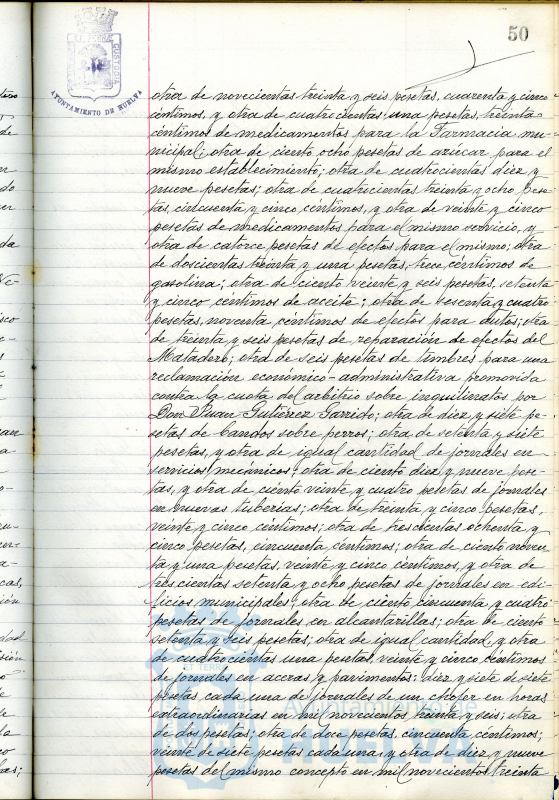 50
AYUNTAMIENTO DE HUELVA
otra de novecientas treinta y seis pesetas, cuarenta y cinco
céntimos, y otra de cuatrocientas una pesetas, treinta
céntimos de medicamentos para la Farmacia mu-
nicipal; otra de ciento ocho pesetas de azúcar para el
mismo establecimiento; otra de cuatrocientas diez y
nueve pesetas; otra de cuatrocientas treinta y ocho pese-
tas, cincuenta y cinco céntimos, y otra de veinte y cinco
pesetas de medicamentos para el mismo servicio, y
otra de catorce pesetas de efectos para el mismo; otra
de doscientas treinta y una pesetas, trece céntimos de
gasolina; otra de ciento veinte y seis pesetas, setenta
y cinco céntimos de aceite; otra de sesenta y cuatro
pesetas, noventa céntimos de efectos para autos; otra
de treinta y seis pesetas de reparación de efectos del
Matadero; otra de seis pesetas de timbres para una
reclamación económico-administrativa promovida
contra la cuota del arbitrio sobre inquilinatos por
Don Juan Gutiérrez Garrido; otra de diez y siete pe-
setas de bandos sobre perros; otra de setenta y siete
pesetas, y otra de igual cantidad de jornales en
servicios mecánicos; otra de ciento diez y nueve pese-
tas, y otra de ciento veinte y cuatro pesetas de jornales
en nuevas tuberías; otra de treinta y cinco pesetas,
veinte y cinco céntimos; otra de trescientas ochenta y
cinco pesetas, cincuenta céntimos; otra de ciento noven-
ta y una pesetas, veinte y cinco céntimos, y otra de
trescientas setenta y ocho pesetas de jornales en edi-
ficios municipales; otra de ciento cincuenta y cuatro
pesetas de jornales en alcantarillas; otra de ciento
setenta y seis pesetas; otra de igual cantidad, y otra
de cuatrocientas una pesetas, veinte y cinco céntimos
de jornales en aceras y pavimentos; diez y siete de siete
pesetas cada una de jornales de un chofer en horas
extraordinarias en mil novecientos treinta y seis; otra
de dos pesetas; otra de doce pesetas, cincuenta céntimos;
veinte de siete pesetas cada una, y otra de diez y nueve
pesetas del mismo concepto en mil novecientos treinta
Ayuntamiento de
HUELVA